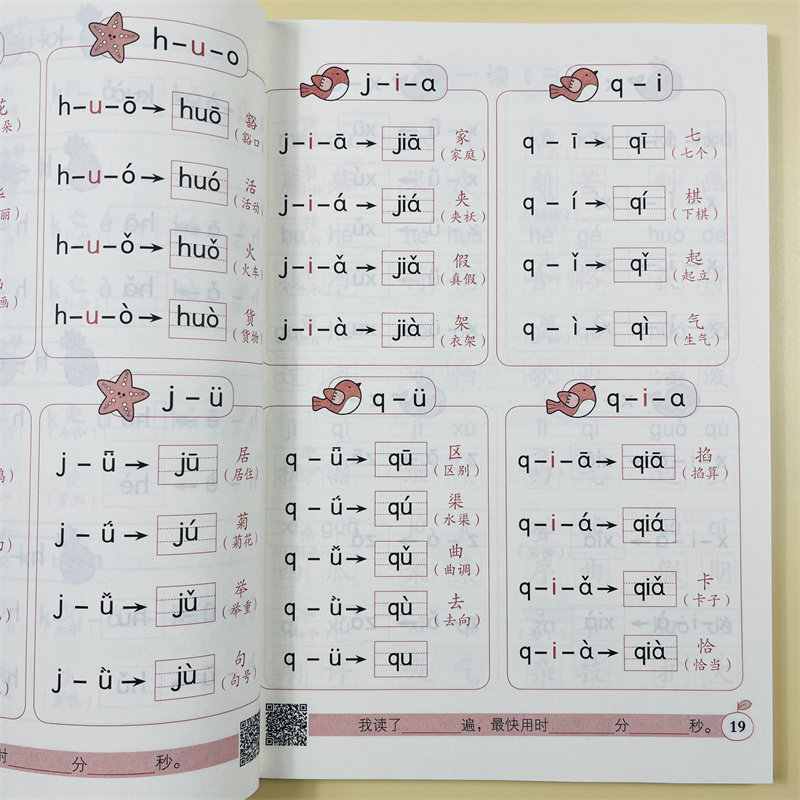 h-u-o
h-u-ō→ huō 豁
（豁口）
h-u-ó→ huó 活
（活动）
h-u-ǒ→ huǒ 火
（火车）
h-u-ò→ huò 货
（货物）
j-ü
j-ǖ→ jū 居
（居住）
j-ǘ→ jú 菊
（菊花）
j-ǚ→ jǔ 举
（举重）
j-ǜ→ jù 句
（句号）
分 秒。
j-i-ɑ
j-i-ā→ jiā 家
（家庭）
j-i-á→ jiá 夹
（夹袄）
j-i-ǎ→ jiǎ 假
（真假）
j-i-à→ jià 架
（衣架）
q-i
q-ī→ qī 七
（七个）
q-í→ qí 棋
（下棋）
q-ǐ→ qǐ 起
（起立）
q-ì→ qì 气
（生气）
q-ü
q-ǖ→ qū 区
（区别）
q-ǘ→ qú 渠
（水渠）
q-ǚ→ qǔ 曲
（曲调）
q-ǜ→ qù 去
（去向）
q-ü→ qu
q-i-ɑ
q-i-ā→ qiā 掐
（掐算）
q-i-á→ qiá
q-i-ǎ→ qiǎ 卡
（卡子）
q-i-à→ qià 恰
（恰当）
我读了 遍，最快用时 分 秒。 19